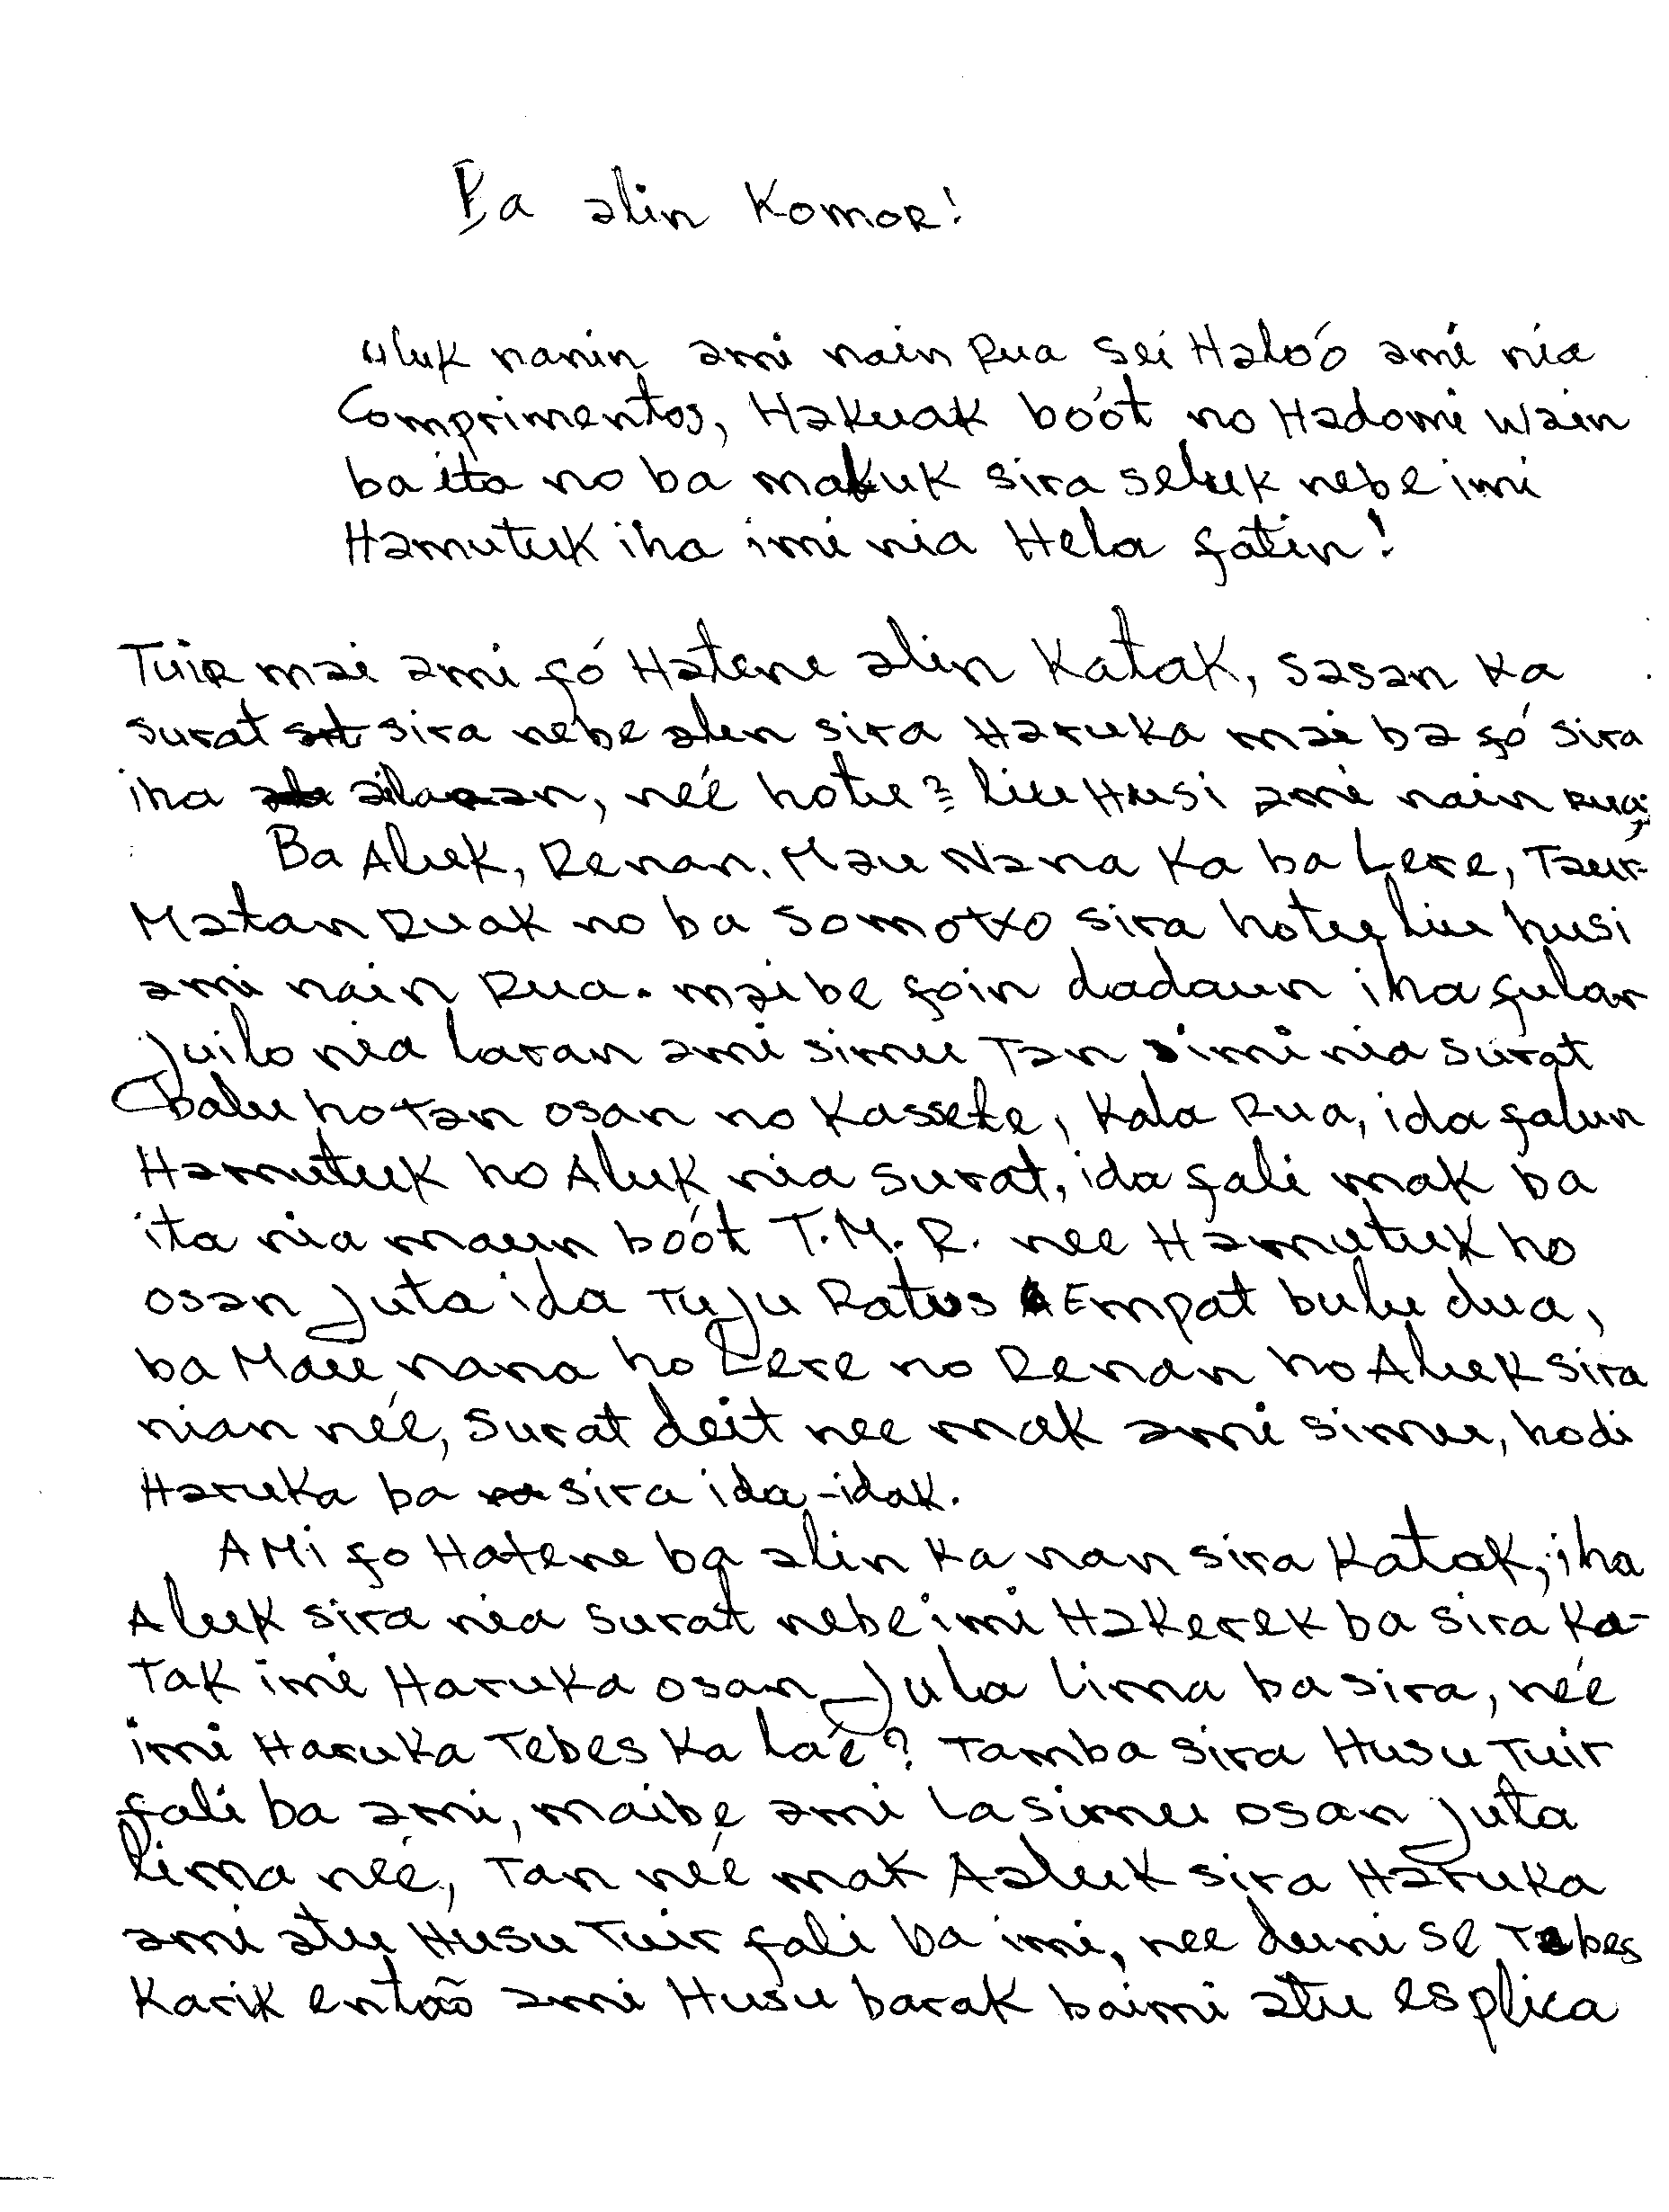 Ba alin Komor!
uluk nanin ami nain Rua sei Haló ó ami nia
Comprimentos, Hakuak boót no Hadomi wain
ba ita no ba makuk sira seluk nebe imi
Hamutuk iha imi nia Hela fatin!
Tuir mai ami fó Hatene alin Katak, sasan Ka
surat sira nebe alin sira Haruka mai ba fó sira
iha ailaran, neé hotu liu Husi ami nain Rua;
Ba Aluk, Renan, Mau Nana Ka ba Lere, Taur-
Matan Ruak no ba Somotxo sira hotu liu husi
ami nain Rua. maibe foin dadaun iha fular
Juilo nia laran ami simu Tan imi nia surat
balu ho Tan osan no Kassete, Kala Rua, ida falun
Hamutuk ho Aluk nia surat, ida fali mak ba
ita nia maun boót T.M.R. nee Hamutuk ho
osan Juta ida Tuju Ratus Empat bulu dua,
ba Mau nana ho Lere no Renan ho Aluk sira
nian neé, surat deit nee mak ami simu, hodi
Haruka ba sira ida-idak.
AMi fo Hatene ba alin Ka nan sira Katak, iha
Aluk sira nia surat nebe imi Hakerek ba sira Ka-
Tak imi Haruka osan Jula lima ba sira, neé
imi Haruka Tebes Ka laé? Tamba sira Husu Tuir
fali ba ami, maibe ami la simu osan Juta
lima neé, Tan neé mak Aaluk sira Haruka
ami atu Husu Tuir fali ba imi, nee duni se Tebes
Karik então ami Husu barak baimi atu esplica